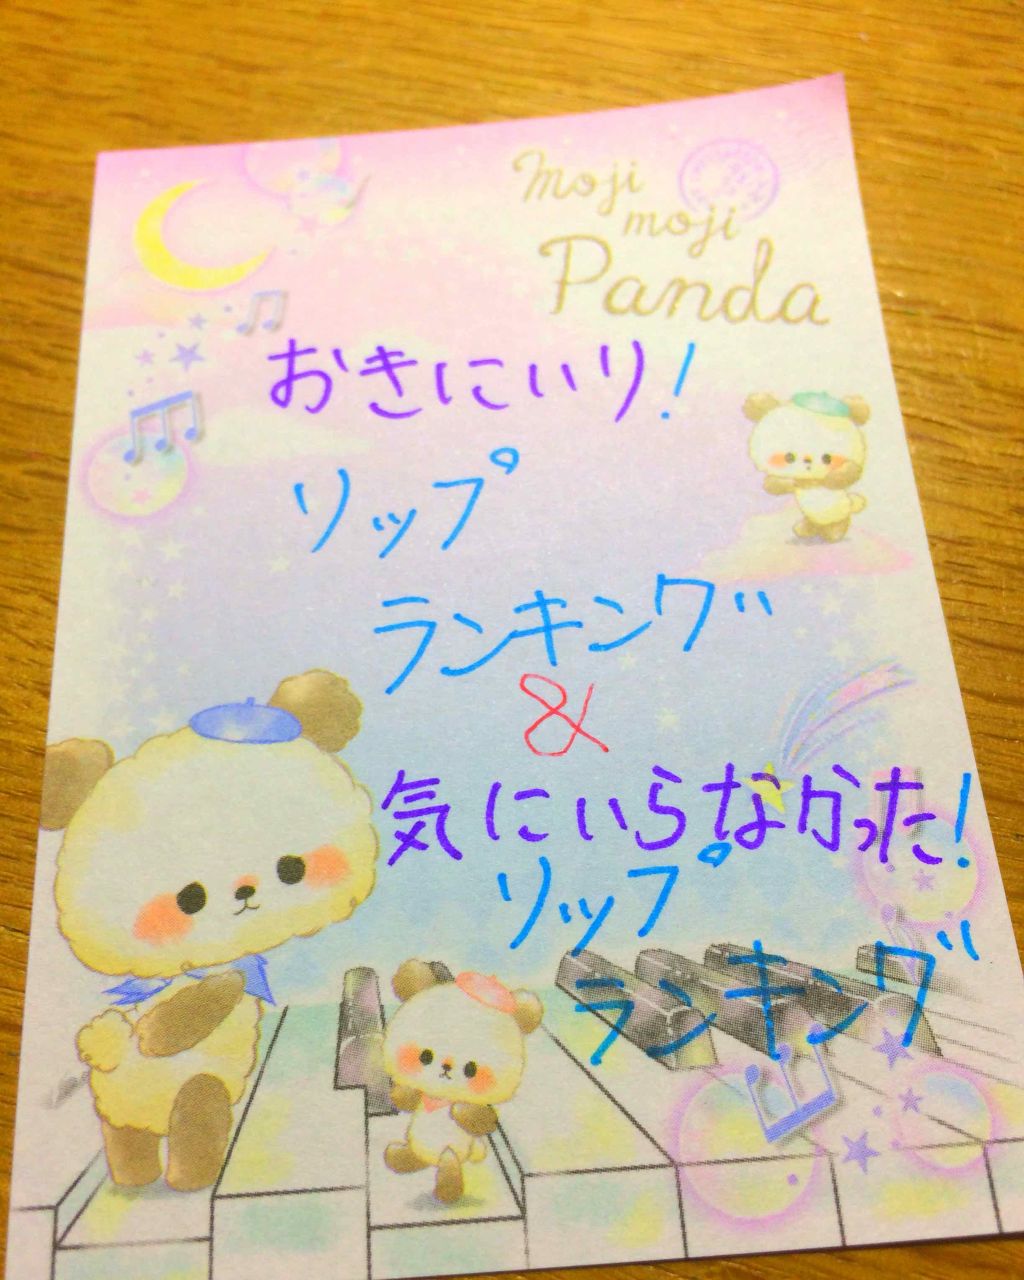 moji
moji
Panda
おきにいり!
リップ
ランキング
&
気にいらなかった!
リップ
ランキング